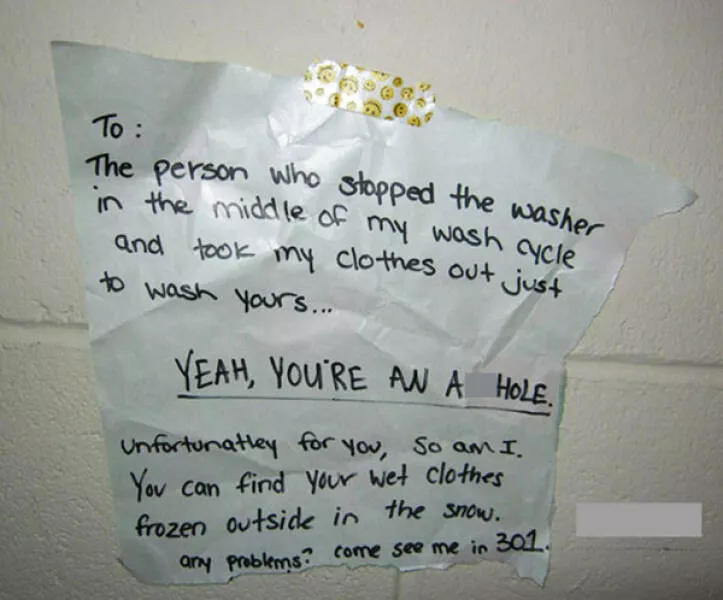 To:
The person who stopped the washer
in the middle of my wash cycle
and took my clothes out just
to wash yours...
YEAH, YOU'RE AN A HOLE.
unfortunatley for you, so am I.
You can find your wet clothes
frozen outside in the snow.
any problems? come see me in 301.